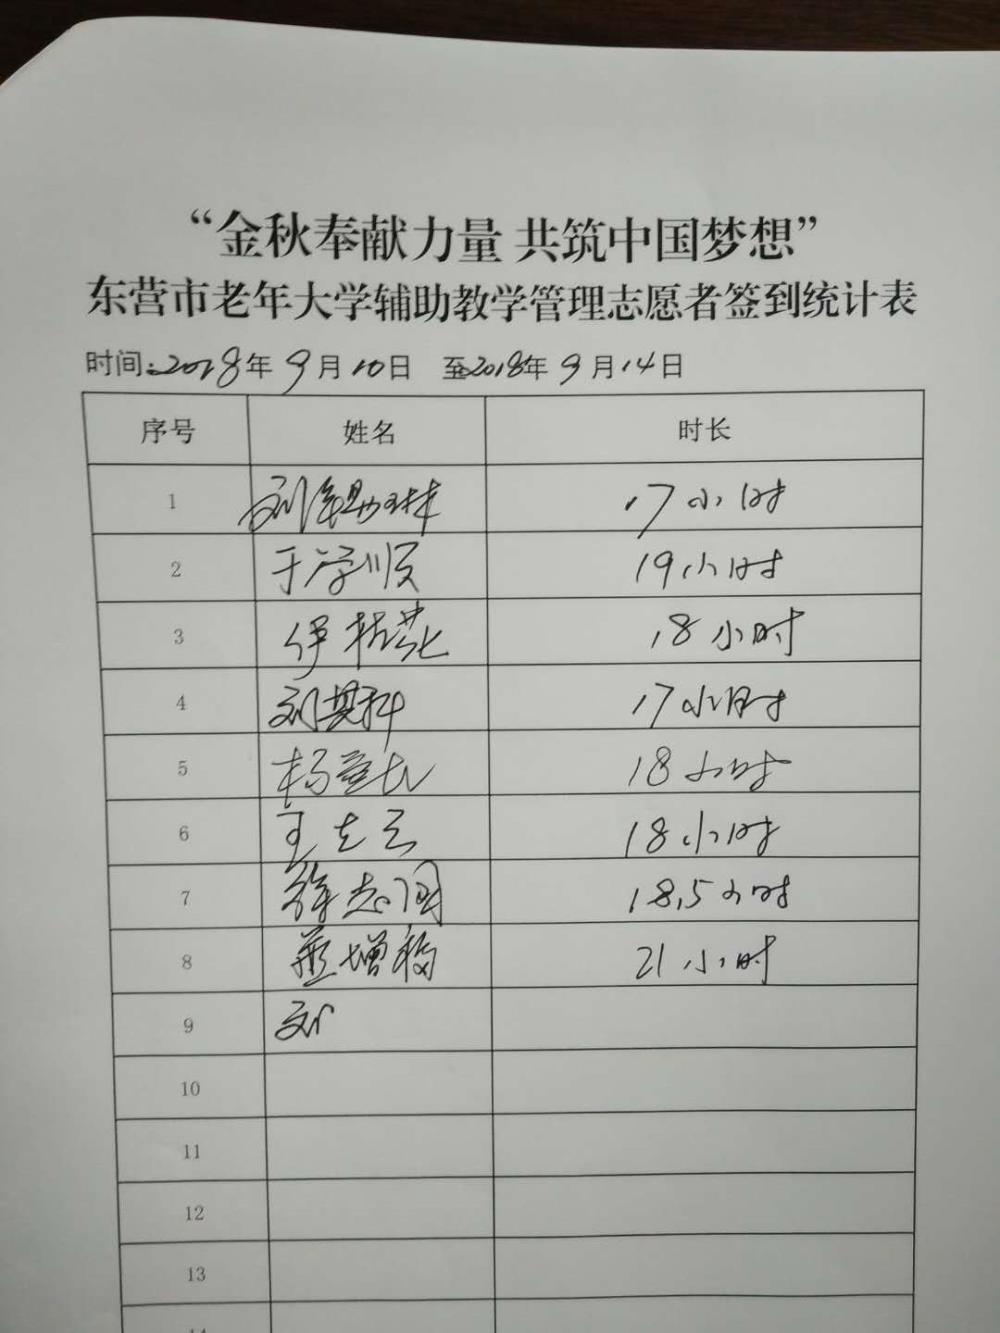 “金秋奉献力量 共筑中国梦想”
东营市老年大学辅助教学管理志愿者签到统计表
时间:2018年9月10日 至2018年9月14日
序号 姓名 时长
1 刘 17小时
2 于学顺 19小时
3 伊桂花 18小时
4 刘其科 17小时
5 杨 18小时
6 王志云 18小时
7 徐志国 18.5小时
8 燕增福 21小时
9 刘
10
11
12
13
14